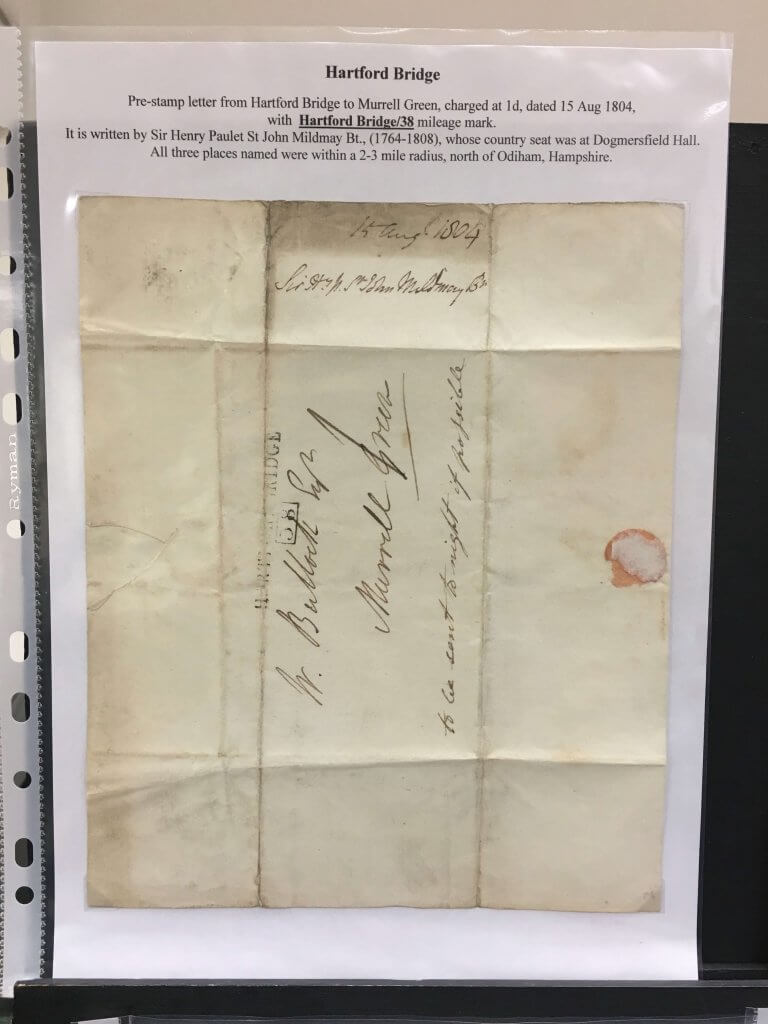 Hartford Bridge
Pre-stamp letter from Hartford Bridge to Murrell Green, charged at 1d, dated 15 Aug 1804,
with Hartford Bridge/38 mileage mark.
It is written by Sir Henry Paulet St John Mildmay Bt., (1764-1808), whose country seat was at Dogmersfield Hall.
All three places named were within a 2-3 mile radius, north of Odiham, Hampshire.
15 Aug 1804
Sir Hy P. St John Mildmay Bt
HARTF RIDGE
38
W. Bullock Esqr
Murrell Green
to be sent to night if possible
Ryman